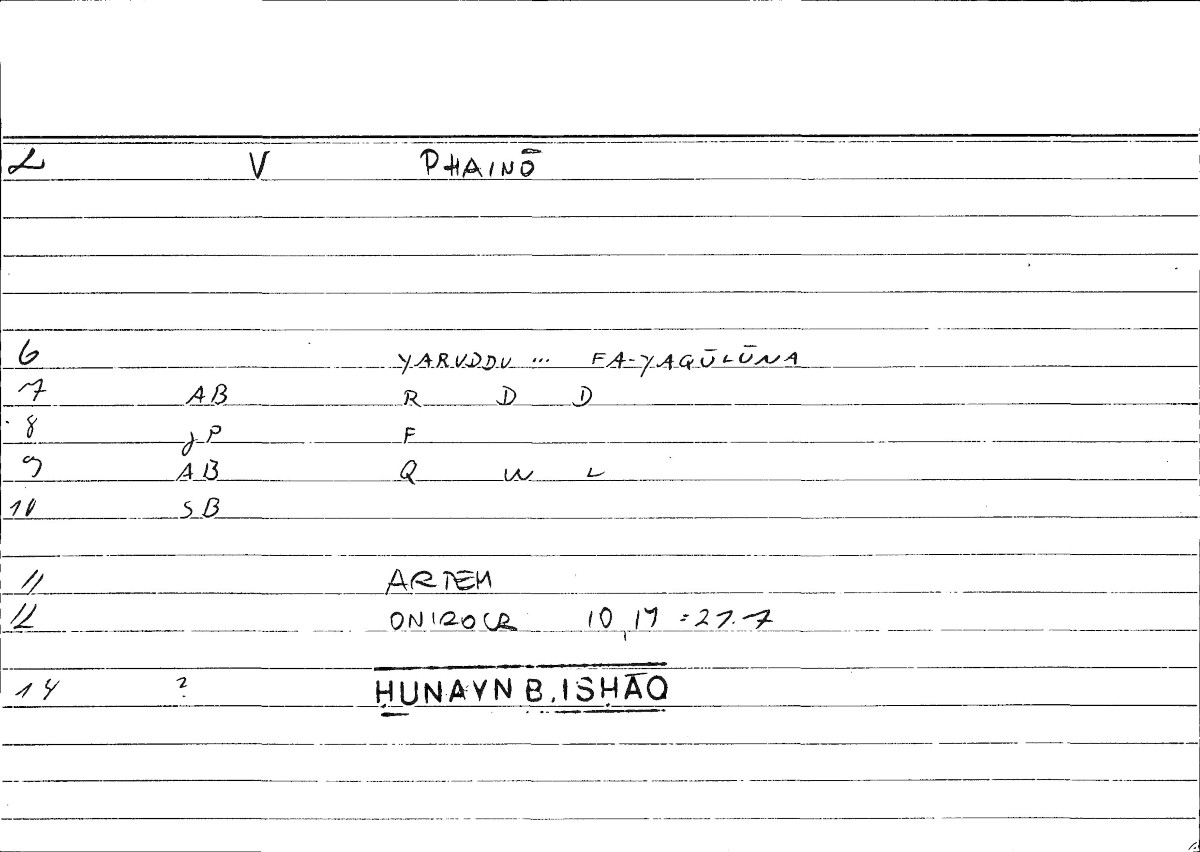 2 V PHAINŌ
6 YARUDDU ... FA-YAQŪLŪNA
7 AB R D D
8 JP F
9 AB Q W L
10 SB
11 ARTEM
12 ONIROCR 10,17 = 27.7
14 ? ḤUNAYN B. ISḤĀQ